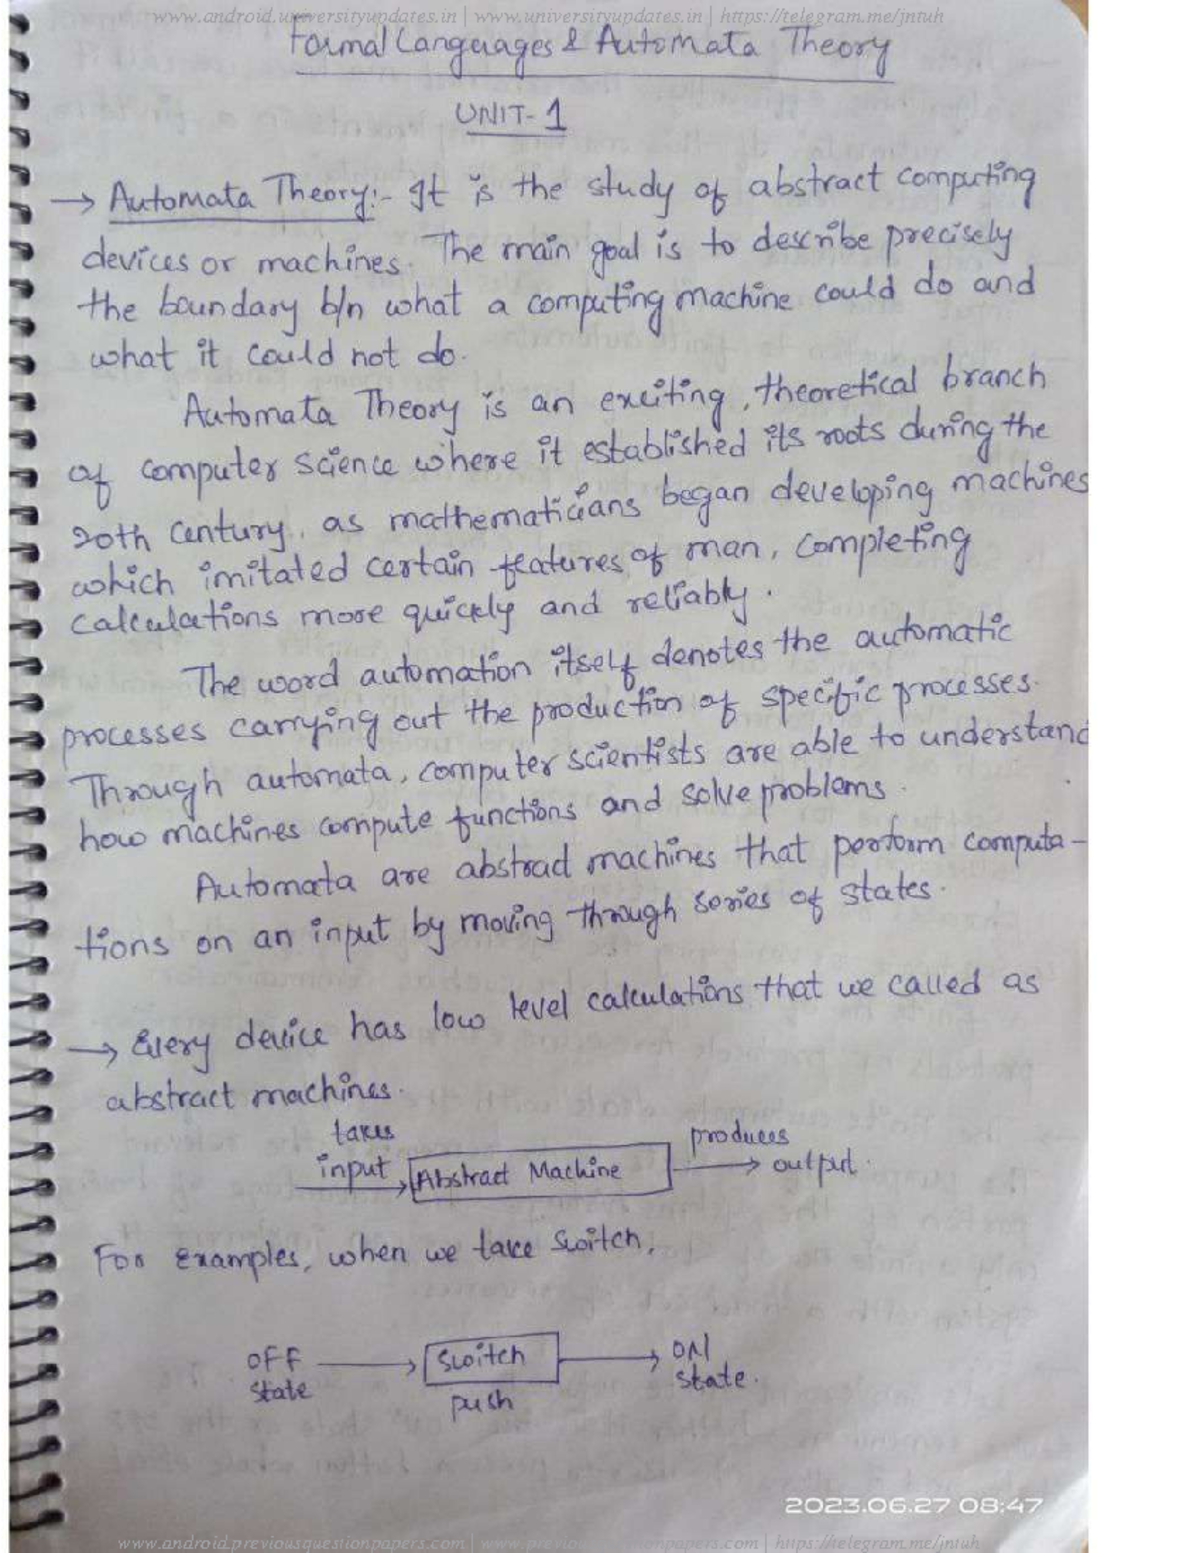 www.android.universityupdates.in | www.universityupdates.in | https://telegram.me/jntuh
Formal Languages & Automata Theory
UNIT-1
→ Automata Theory:- It is the study of abstract computing
devices or machines. The main goal is to describe precisely
the boundary b/n what a computing machine could do and
what it could not do.
Automata Theory is an exciting, theoretical branch
of computer science where it established its roots during the
20th century, as mathematicians began developing machines
which imitated certain features of man, completing
calculations more quickly and reliably.
The word automation itself denotes the automatic
processes carrying out the production of specific processes.
Through automata, computer scientists are able to understand
how machines compute functions and solve problems.
Automata are abstract machines that perform computa-
tions on an input by moving through series of states.
→ Every device has low level calculations that we called as
abstract machines.
takes produces
input Abstract Machine output.
For examples, when we take switch,
OFF Switch ON
state push state.
2023.06.27 08:47
www.android.previousquestionpapers.com | www.previousquestionpapers.com | https://telegram.me/jntuh